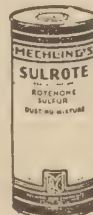 MECHLING'S
SULROTE
ROTENONE
SULFUR
DUST